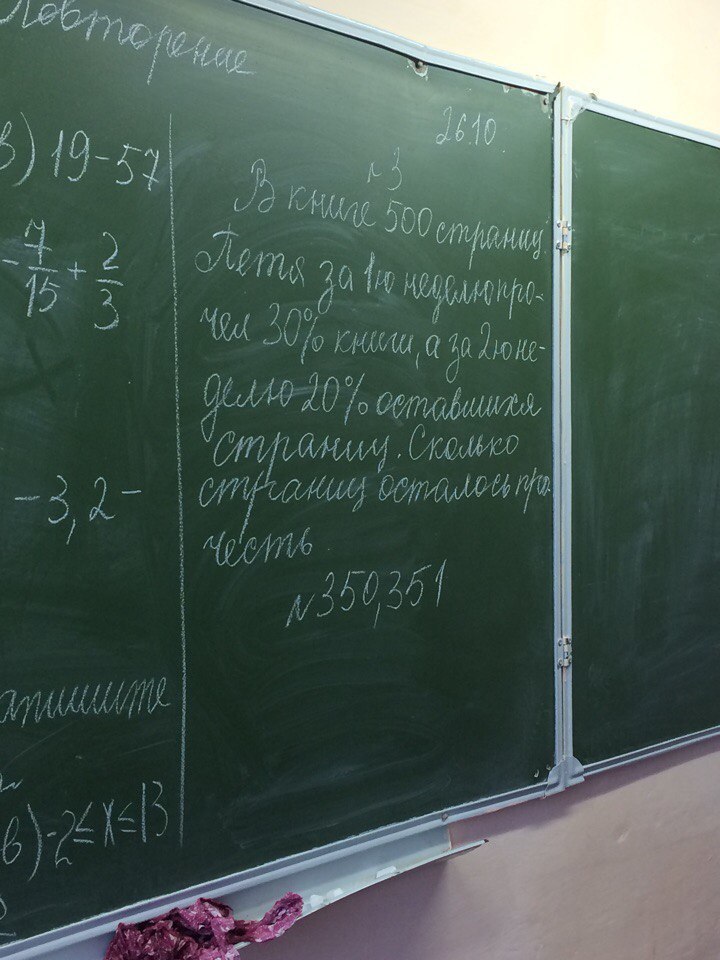 Повторение
в) 19-57
- 7/15 + 2/3
-3,2-
апишите
в) -2≤x≤13
26.10.
№3
В книге 500 страниц
Петя за 1ю неделю про-
чел 30% книги, а за 2ю не-
делю 20% оставшихся
страниц. Сколько
страниц осталось про
честь
№350,351